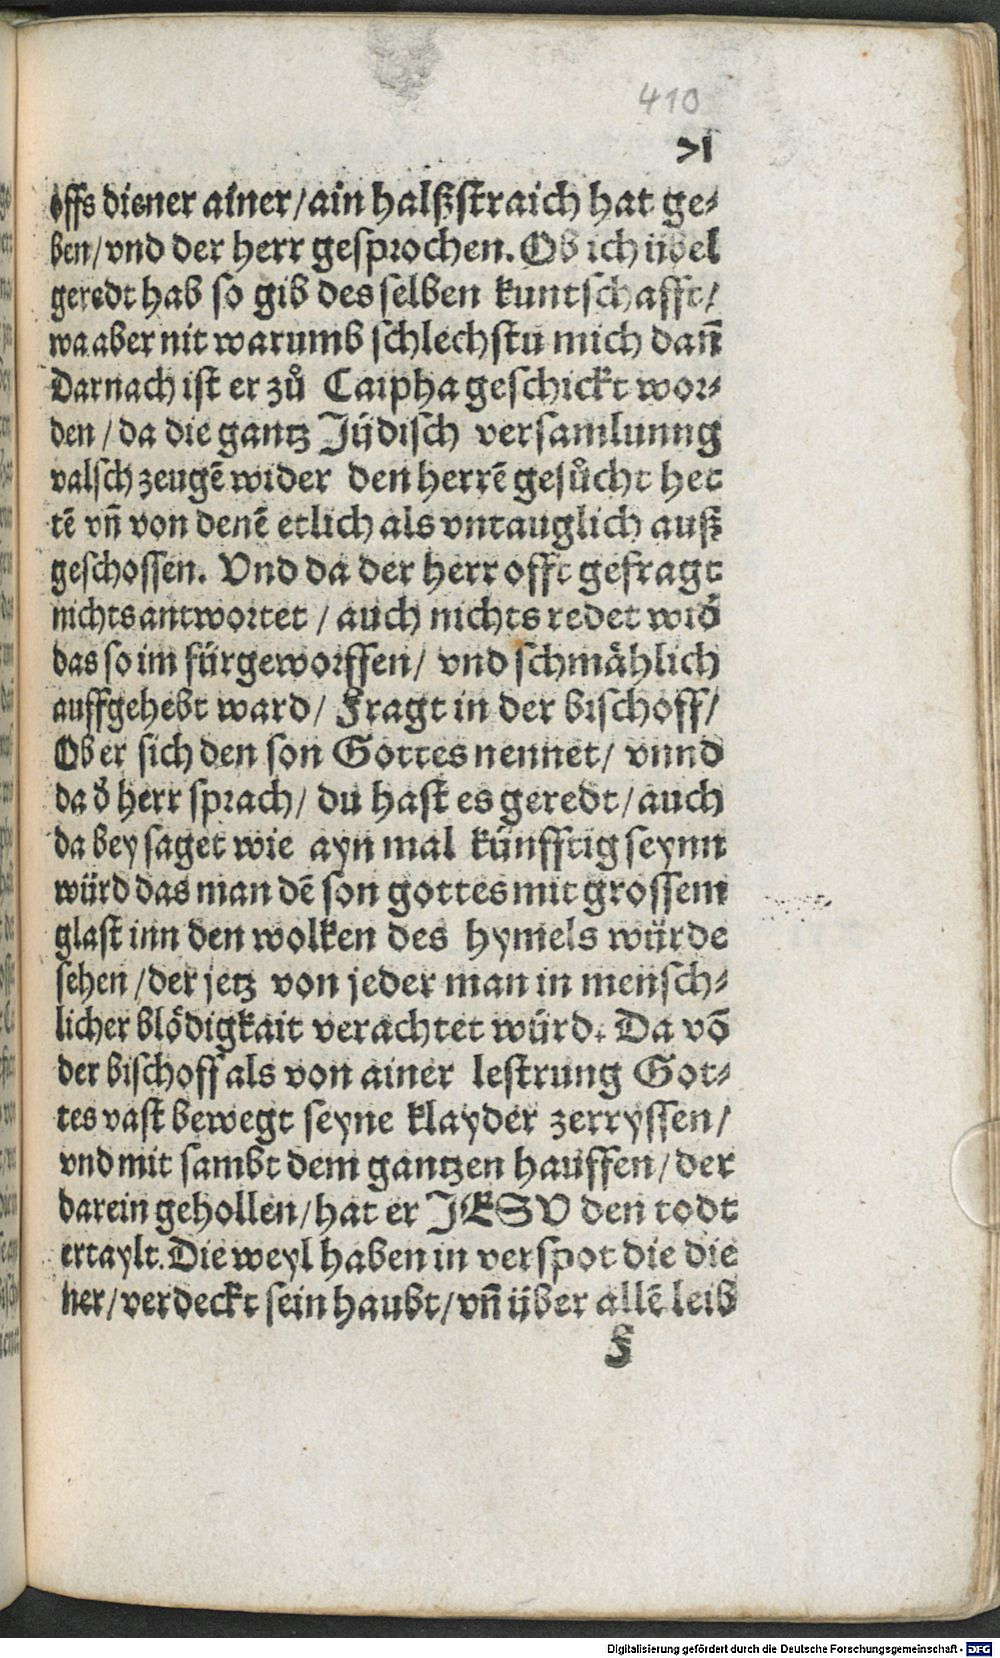 410
>I
offs diener ainer/ain halßstraich hat ge-
ben/vnd der herr gesprochen. Ob ich übel
geredt hab so gib des selben kuntschafft/
wa aber nit warumb schlechstu mich dañ
Darnach ist er zů Caipha geschickt wor-
den/da die gantz Jüdisch versamlunng
valsch zeugē wider den herrē gesůcht het
tē vñ von denē etlich als vntauglich auß
geschossen. Vnd da der herr offt gefragt
nichts antwortet/auch nichts redet wid̕
das so im fürgeworffen/vnd schmählich
auffgehebt ward/Fragt in der bischoff/
Ob er sich den son Gottes nennet/vnnd
da d̕ herr sprach/du hast es geredt/auch
da bey saget wie ayn mal künfftig seynn
würd das man dē son gottes mit grossem
glast inn den wolken des hymels würde
sehen/der jetz von jeder man in mensch-
licher blödigkait verachtet würd. Da võ
der bischoff als von ainer lestrung Got-
tes vast bewegt seyne klayder zerryssen/
vnd mit sambt dem gantzen hauffen/der
darein gehollen/hat er JESV den todt
ertaylt. Die weyl haben in verspot die die
ner/verdeckt sein haubt/vñ über allē leib
F
Digitalisierung gefördert durch die Deutsche Forschungsgemeinschaft - DFG